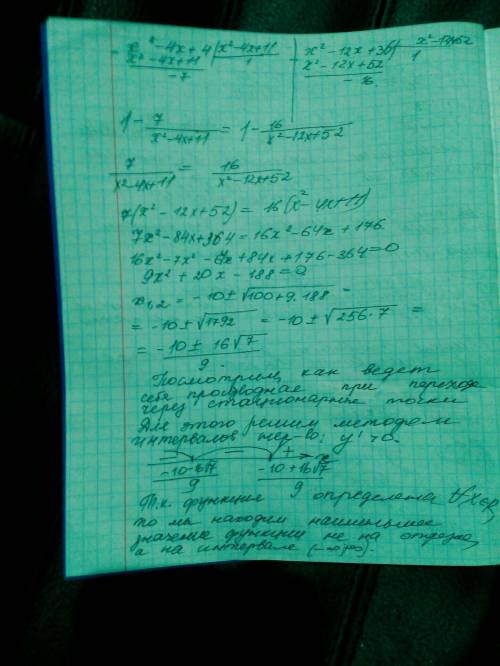 x² - 4x + 4 | x² - 4x + 11
x² - 4x + 11 | 1
-7
x² - 12x + 36 | x² - 12x + 52
x² - 12x + 52 | 1
-16
1 - 7/(x² - 4x + 11) = 1 - 16/(x² - 12x + 52)
7/(x² - 4x + 11) = 16/(x² - 12x + 52)
7(x² - 12x + 52) = 16(x² - 4x + 11)
7x² - 84x + 364 = 16x² - 64x + 176
16x² - 7x² - 64x + 84x + 176 - 364 = 0
9x² + 20x - 188 = 0
x₁,₂ = -10 ± √(100 + 9·188) =
= -10 ± √1792 = -10 ± √(256·7) =
= (-10 ± 16√7)/9.
Посмотрим, как ведет
себя производная при переходе
через стационарные точки
Для этого решим методом
интервалов нер-во: y' > 0.
— — + x
(-10-16√7)/9 (-10+16√7)/9
Т.к. функция определена ∀x∈R,
то мы находим наименьшее
значение функции не на отрезке,
а на интервале (-∞;∞).